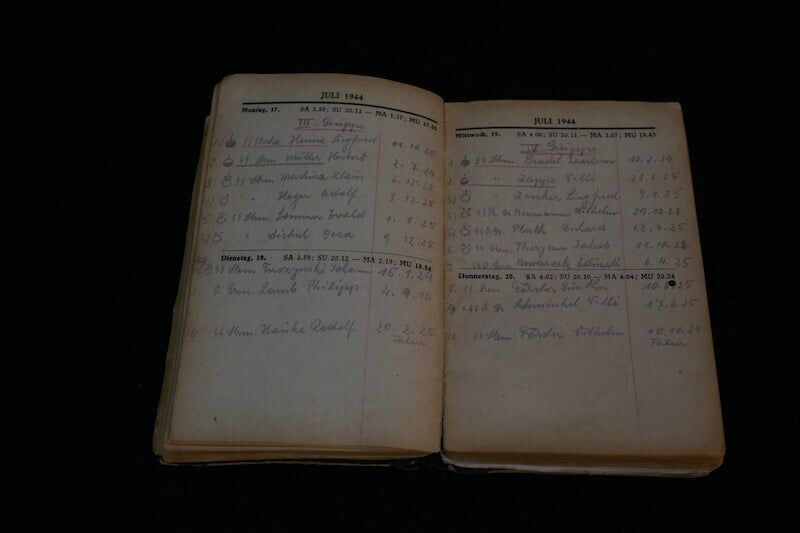 JULI 1944
Montag, 17. SA 3.58; SU 20.13 — MA 1.37; MU 17.48
III. Gruppe
Henne Siegfried 11.10.25
2. SS Strm Müller Herbert 2.7.24
3. SS Strm Martina Klain 6.12.25
" Heger Adolf 3.12.25
5. SS Strm Sommer Ewald 1.8.25
" Géza 9.12.25
Dienstag, 18. SA 3.59; SU 20.12 — MA 2.19; MU 18.54
SS Strm Johann 15.1.24
Lamb Philipp 4.9.10
SS Strm. Hanke Rudolf 20.2.25
Fahrer
JULI 1944
Mittwoch, 19. SA 4.00; SU 20.11 — MA 3.07; MU 19.43
IV. Gruppe
1. SS Strm. Bradel 10.2.24
2. " Zappe Willi 23.3.25
" Zenker Siegfried 9.1.25
Neumann Wilhelm 29.12.23
Plath Richard 12.6.25
6. SS Strm. Jakob
7. Nowaczek Eduard 6.4.25
Donnerstag, 20. SA 4.02; SU 20.10 — MA 4.04; MU 20.24
8. SS Strm. Förster Günther 25
9. Willi 17.6.25
10. SS Strm. Förder Wilhelm 10.10.24
Fahrer